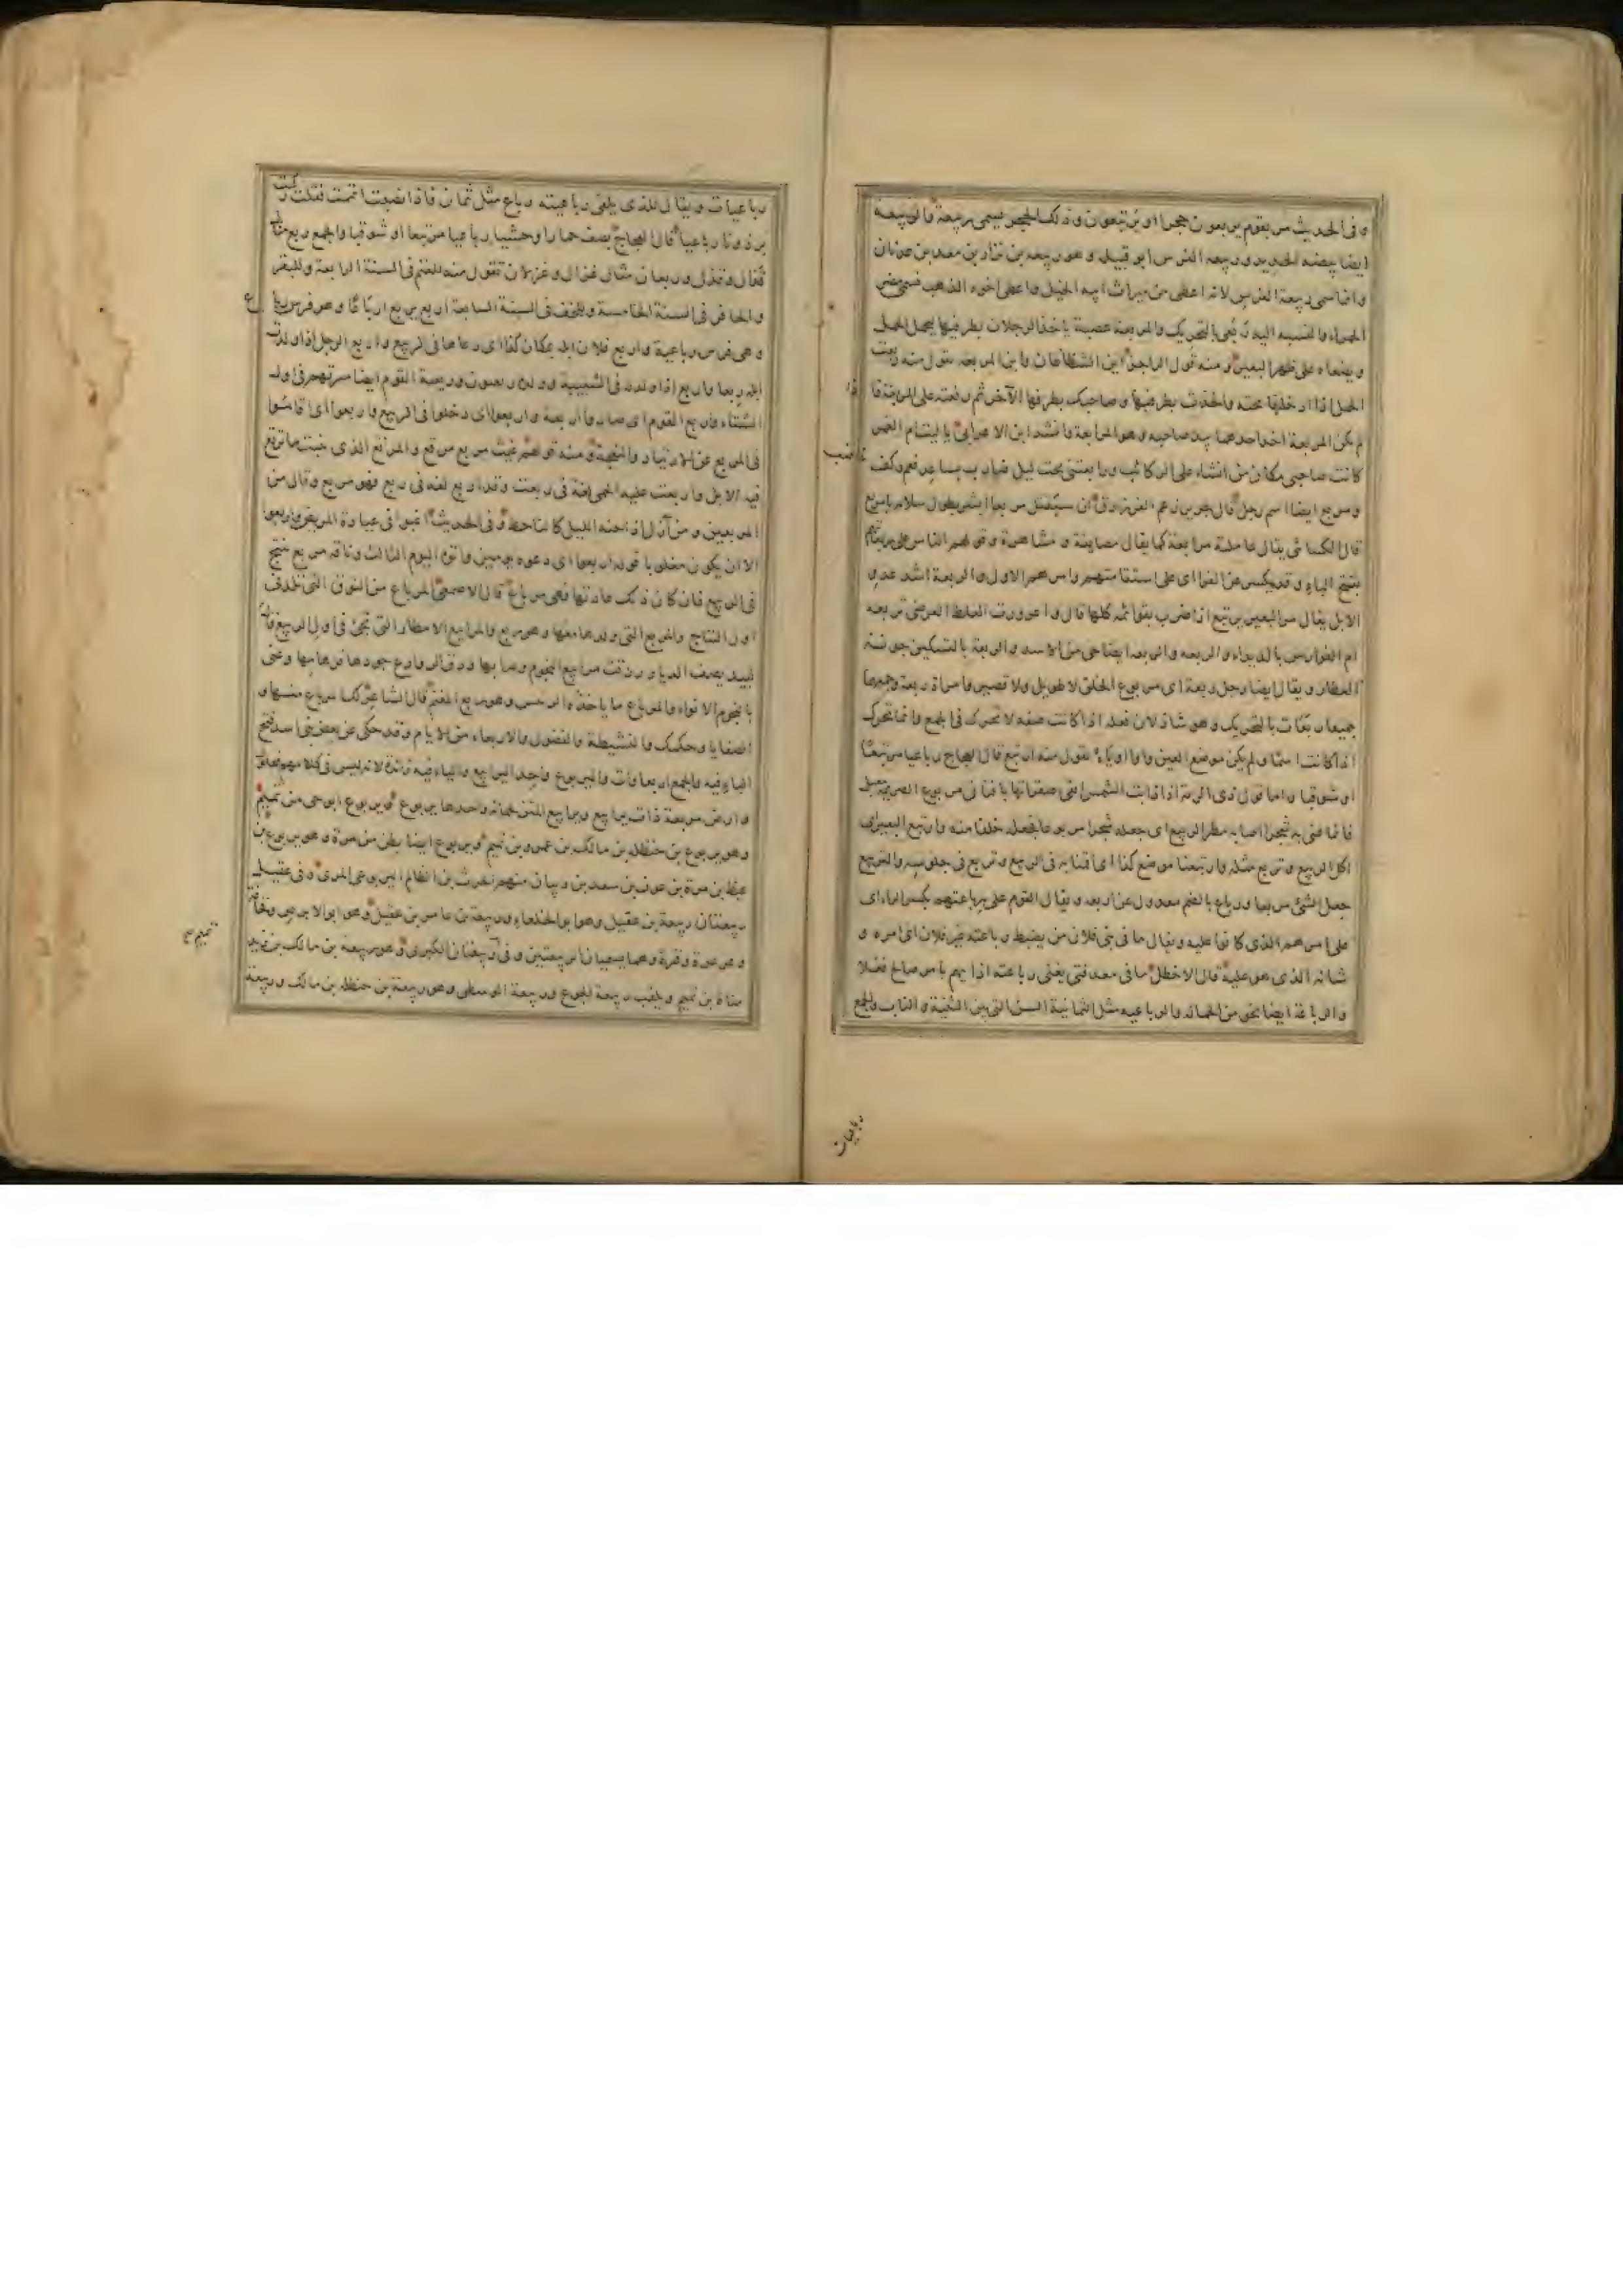 و فى الحديث مر بقوم يربعون حجرا او يرتبعون وذلك الحجر يسمى ربيعة والربيعة
ايضا بيضه الحديد وربيعه الفرس ابو قبيله وهو ربيعه بن نزار بن معد بن عدنان
وانما سمى ربيعة الفرس لانه اعطى من ميراث ابيه الخيل واعطى اخوه الذهب فسمى مضر
الحمراء والنسبه اليه ربعى بالتحريك والمربعة عصية ياخذ الرجلان بطرفيها ليحمل الحمل
ويضعاه على ظهر البعير ومنه قول الراجز اين الشظاظان واين المربعه تقول منه ربعت
الحمل اذا ادخلتها تحته واخذت بطرفيها وصاحبك بطرفها الآخر ثم رفعته على البعير فا
لم يكن المربعة اخذ احدهما بيد صاحبه وهو المرابعة وانشد ابن الاعرابى يا ليت ام الغمر
كانت صاحبى مكان من انشاء على الركائب ورابعتنى تحت ليل ضارب بساعد فعم وكف
ومربع ايضا اسم رجل قال جرير زعم الفرزدق ان سيقتل مربعا ابشر بطول سلامه يا مربع
قال الكسائى يقال عاملته مرابعة كما يقال مصايفة و مشاهرة وقولهم الناس على ربعاتهم
بفتح الباء و قد يكسر عن الفرا اى على استقامتهم وامرهم الاول والربعة اشد عدو
الابل يقال مر البعير يرتبع اذا ضرب بقوائمه كلها قال واعرورت العلط العرضى تركضه
ام الفوارس بالديداء والربعه والربعه ايضا حى من الاسد والربعة بالتسكين جونة
العطار ويقال ايضا رجل ربعة اى مربوع الخلق لا طويل ولا قصير وامراة ربعة وجمعهما
جميعا ربعات بالتحريك وهو شاذ لان فعله اذا كانت صفه لا تحرك فى الجمع وانما تحرك
اذا كانت اسما ولم يكن موضع العين واوا او ياء تقول منه ارتبع قال العجاج رباعيا مرتبعا
او شوقبا واما قول ذى الرمة اذا ذابت الشمس اتقى صقراتها بافنان مربوع الصريمة معبل
فانما عنى به شجرا اصابه مطر الربيع اى جعله شجرا مربوعا فجعله خلفا منه وارتبع البعير اى
اكل الربيع وتربع مثله وارتبعنا موضع كذا اى اقمنا به فى الربيع وتربع فى جلوسه والتربيع
جعل الشئ مربعا ورباع بالضم معدول عن اربعه ويقال القوم على رباعتهم بكسر الراء اى
على امرهم الذى كانوا عليه ويقال ما فى بنى فلان من يضبط رباعته غير فلان اى امره و
شانه الذى هو عليه قال الاخطل ما فى معد فتى يغنى رباعته اذا يهم بامر صالح فعلا
والرباعة ايضا نحو من الحماله والرباعيه مثل الثمانية السن التى بين الثنية والناب والجمع
رباعيات
رباعيات ويقال للذى يلقى رباعيته رباع مثل ثمان فاذا نصبت اتممت فقلت ركبت
برذونا رباعيا قال العجاج يصف حمارا وحشيا رباعيا مرتبعا او شوقبا والجمع ربع مثال
قذال وقذل وربعان مثال غزال وغزلان تقول منه للغنم فى السنة الرابعة وللبقر
والحافر فى السنة الخامسة وللخف فى السنة السابعة اربع يربع ارباعا وهو فرس رباع
وهى فرس رباعية واربع فلان ابله بمكان كذا اى رعاها فى الربيع واربع الرجل اذا وردت
ابله ربعا واربع اذا ولد له فى الشبيبة وولده ربعيون وربعية القوم ايضا ميرتهم فى اول
الشتاء واربع القوم اى صاروا اربعة واربعوا اى دخلوا فى الربيع واربعوا اى اقاموا
فى المربع عن الارتياد والنجعة ومنه قولهم غيث مربع مرتع والمرتع الذى ينبت ما ترتع
فيه الابل واربعت عليه الحمى لغة فى ربعت وقد اربع لغه فى ربع فهو مربع وقال من
المربعين ومن آزل اذا جنه الليل كالناحط وفى الحديث اغبوا فى عيادة المريض واربعوا
الا ان يكون مغلوبا قوله اربعوا اى دعوه يومين واتوه اليوم الثالث وناقه مربع تنتج
فى الربيع فان كان ذلك عادتها فهى مرباع قال الاصمعى المرباع من النوق التى تلد فى
اول النتاج والمربع التى ولدها معها وهو ربع والمرابيع الامطار التى تجئ فى اول الربيع قال
لبيد يصف الديار رزقت مرابيع النجوم وصابها ودق الرواعد جودها فرهامها وعنى
بالنجوم الانواء والمرباع ما ياخذه الرئيس وهو ربع المغنم قال الشاعر لك المرباع منها و
الصفايا وحكمك والنشيطة والفضول والاربعاء من الايام وقد حكى عن بعض بنى اسد فتح
الباء فيه والجمع اربعاوات واليربوع واحد اليرابيع والياء فيه زائدة لانه ليس فى كلامهم فعلول
وارض مربعة ذات يرابيع ويرابيع المتن لحماته واحدها يربوع ويربوع ابو حى من تميم
وهو يربوع بن حنظله بن مالك بن عمرو بن تميم ويربوع ايضا بطن من مرة وهو يربوع بن
غيظ بن مرة بن عوف بن سعد بن ذبيان منهم الحرث بن الظالم اليربوعى المرى وفى عقيل
ربيعتان ربيعة بن عقيل وهو ابو الخلعاء وربيعة بن عامر بن عقيل وهو ابو الابرص وقحافة
وعرعرة وقرة وهما ينسبان للربيعتين وفى تميم ربيعتان الكبرى وهو ربيعة بن مالك بن زيد
مناة بن تميم ويلقب ربيعة الجوع وربيعة الوسطى وهو ربيعة بن حنظله بن مالك وربيعة